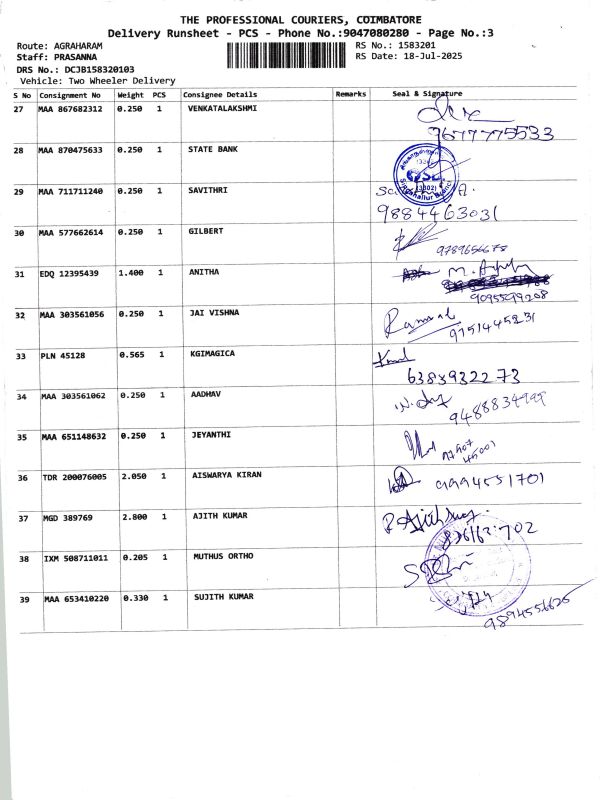 THE PROFESSIONAL COURIERS, COIMBATORE
Delivery Runsheet - PCS - Phone No.:9047080280 - Page No.:3
Route: AGRAHARAM RS No.: 1583201
Staff: PRASANNA RS Date: 18-Jul-2025
DRS No.: DCJB158320103
Vehicle: Two Wheeler Delivery
S No Consignment No Weight PCS Consignee Details Remarks Seal & Signature
27 MAA 867682312 0.250 1 VENKATALAKSHMI
9677775533
28 MAA 870475633 0.250 1 STATE BANK
29 MAA 711711240 0.250 1 SAVITHRI
9884463031
30 MAA 577662614 0.250 1 GILBERT
9789656675
31 EDQ 12395439 1.400 1 ANITHA
9095599208
32 MAA 303561056 0.250 1 JAI VISHNA
9751445231
33 PLN 45128 0.565 1 KGIMAGICA
6383932273
34 MAA 303561062 0.250 1 AADHAV
35 MAA 651148632 0.250 1 JEYANTHI
36 TDR 200076005 2.050 1 AISWARYA KIRAN
9994551701
37 MGD 389769 2.800 1 AJITH KUMAR
38 IXM 508711011 0.205 1 MUTHUS ORTHO
39 MAA 653410220 0.330 1 SUJITH KUMAR
9894556625